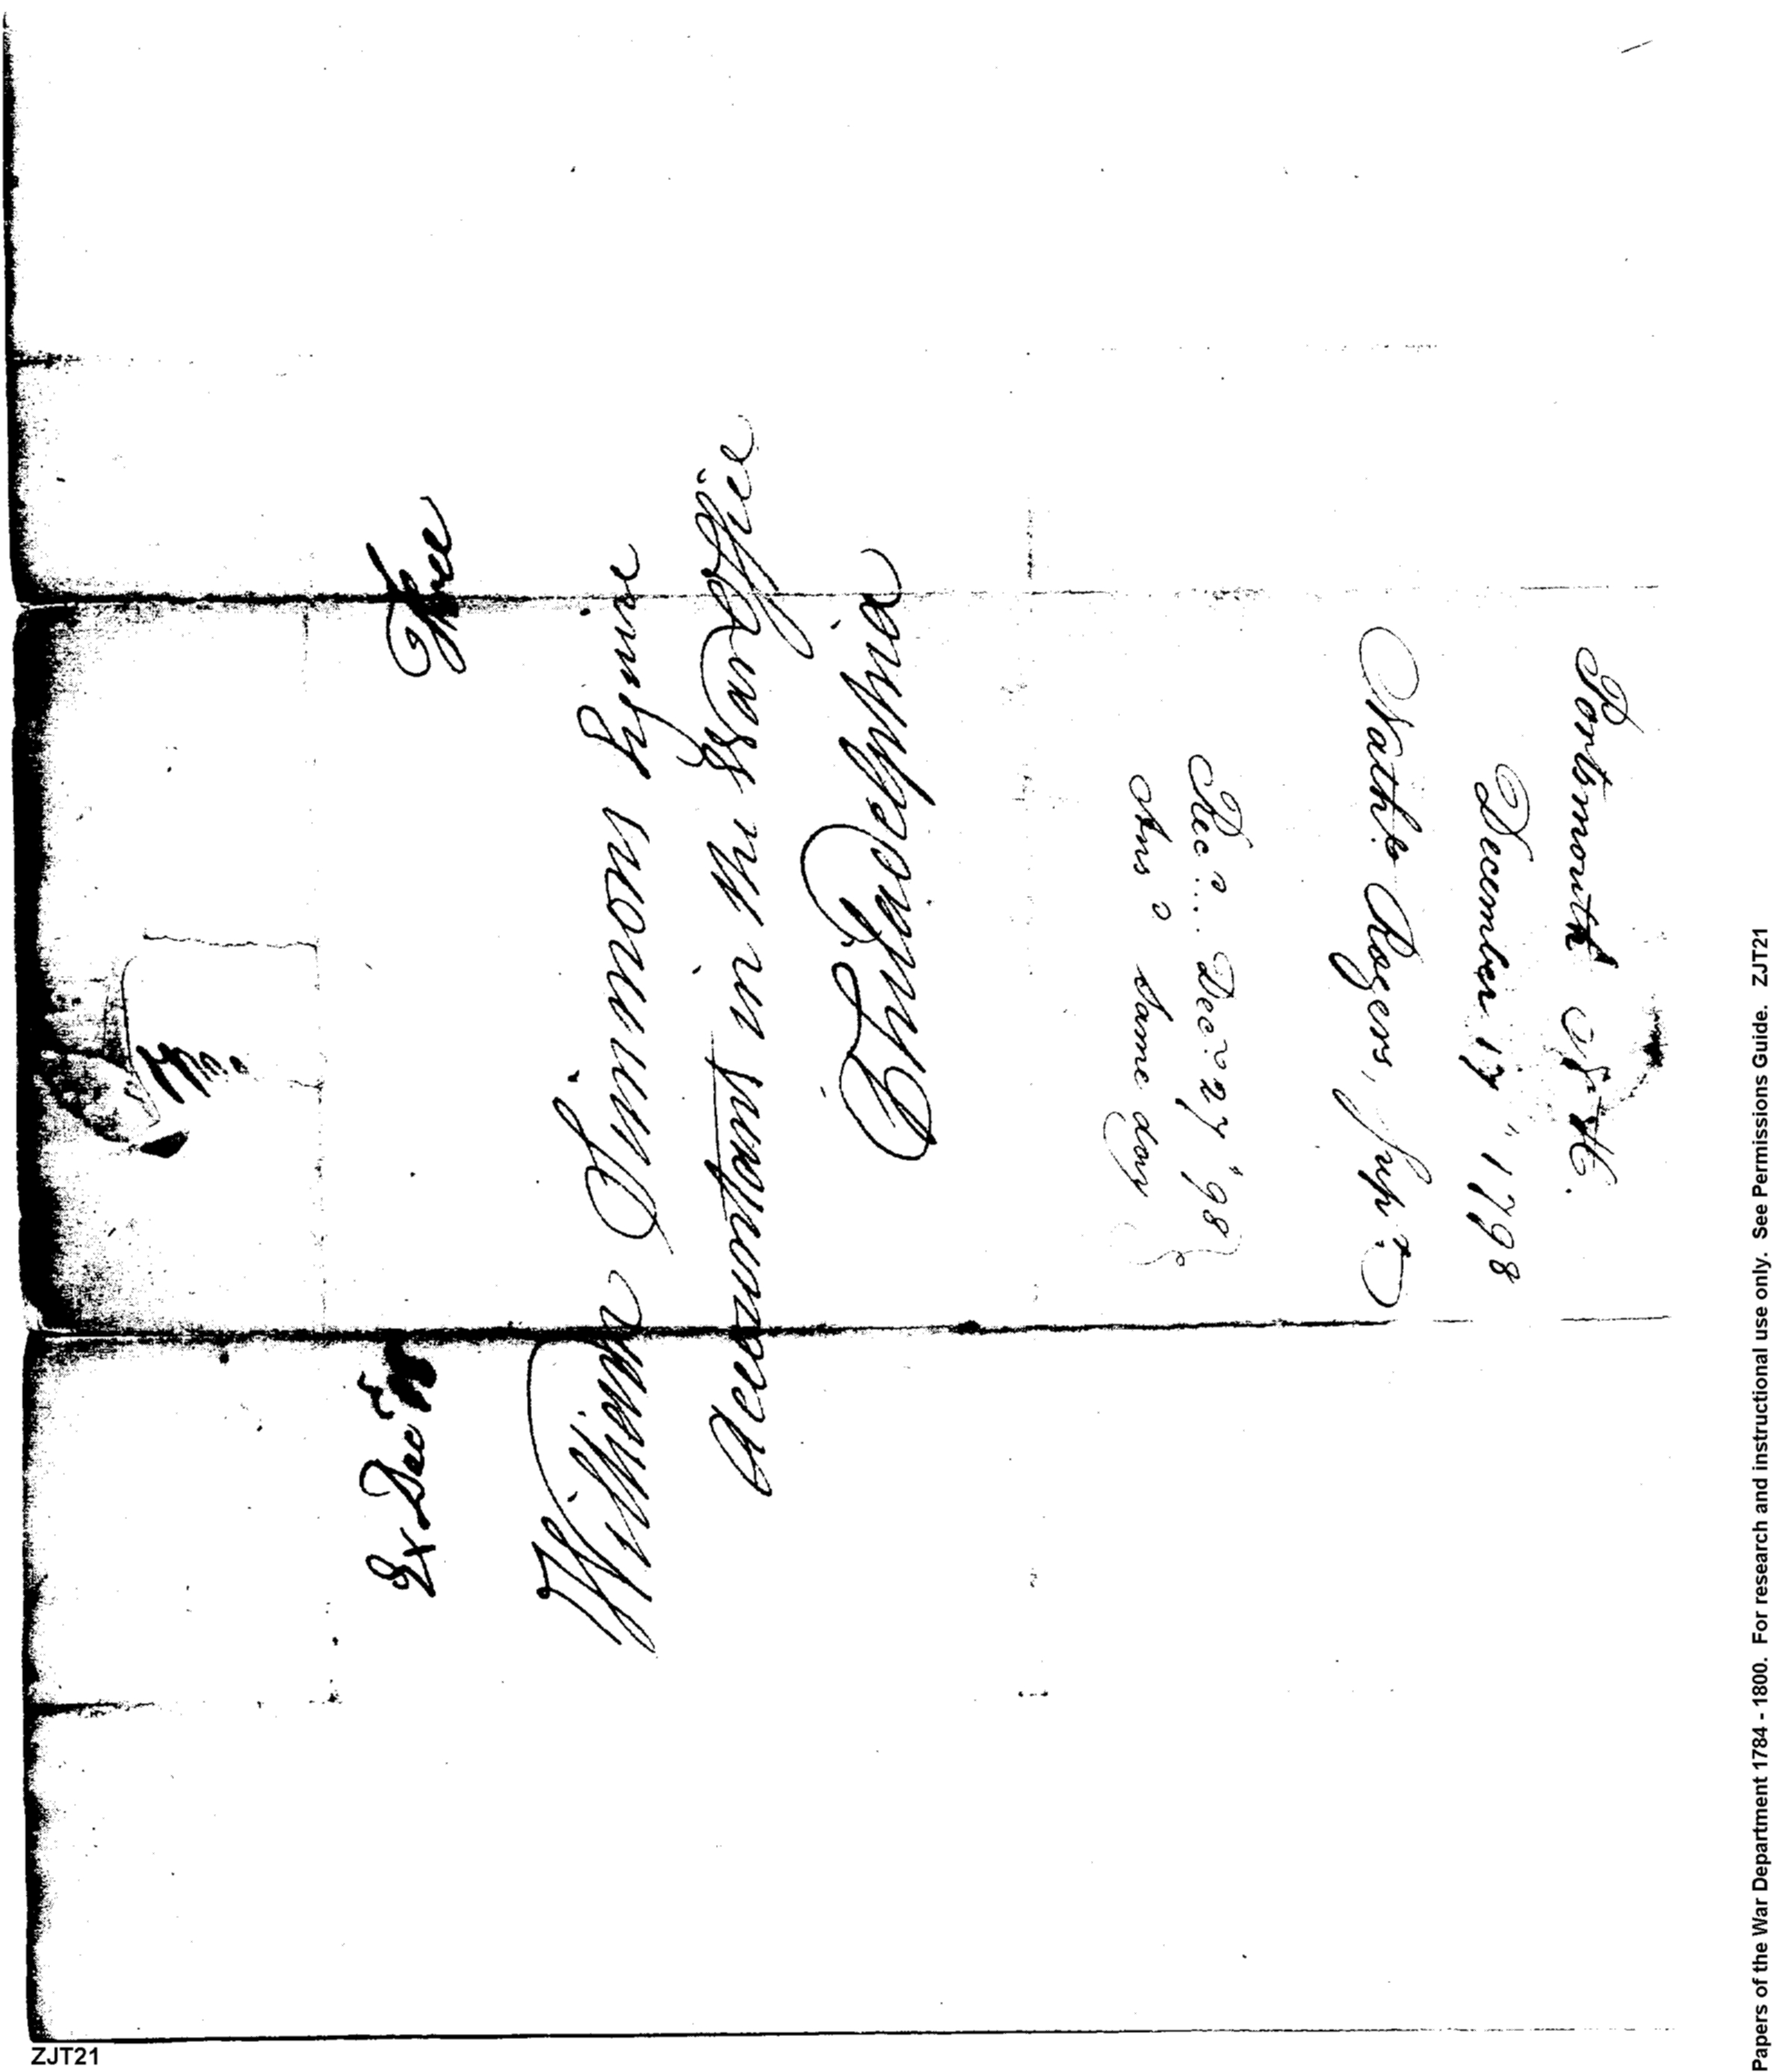 Ex Dec
Free
William Simmons Esquire
Accountant in the War Office
Philadelphia
Portsmouth N. H.
December 17" 1798
Nathl. Rogers, Supt.
Recd... Decr. 27" 98
Ansd same day
ZJT21
Papers of the War Department 1784 - 1800. For research and instructional use only. See Permissions Guide. ZJT21